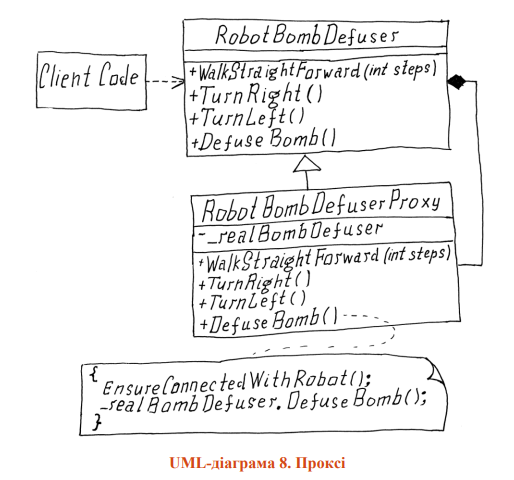 RobotBombDefuser
Client Code
+WalkStraightForward(int steps)
+TurnRight()
+TurnLeft()
+DefuseBomb()
RobotBombDefuserProxy
-_realBombDefuser
+WalkStraightForward(int steps)
+TurnRight()
+TurnLeft()
+DefuseBomb()
{
EnsureConnectedWithRobot();
_realBombDefuser.DefuseBomb();
}
UML-діаграма 8. Проксі